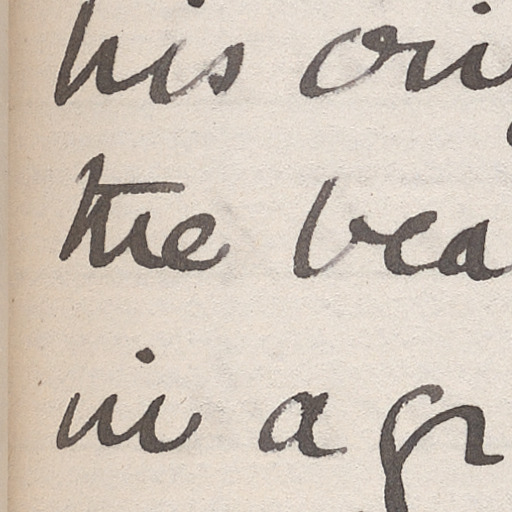 his ori
the bea
in a gr